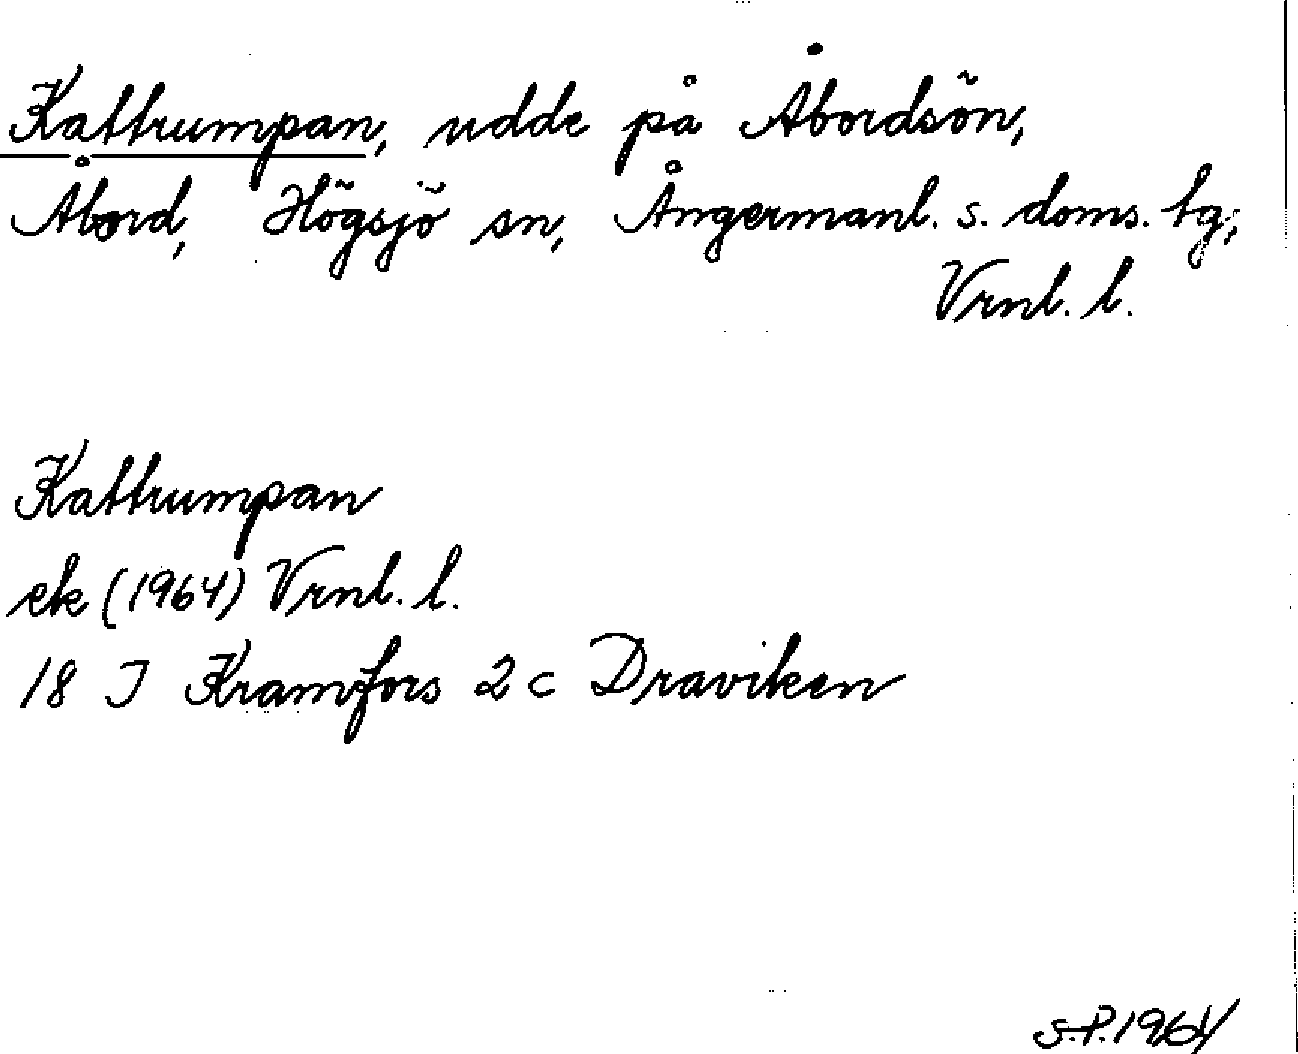 Kattrumpan, udde på Åbordsön,
Åbord, Högsjö sn, Ångermanl. s. doms. tg;
Vrnl. l.
Kattrumpan
ek (1964) Vrnl. l.
18 I Kramfors 2 c Draviken
S.P. 1964